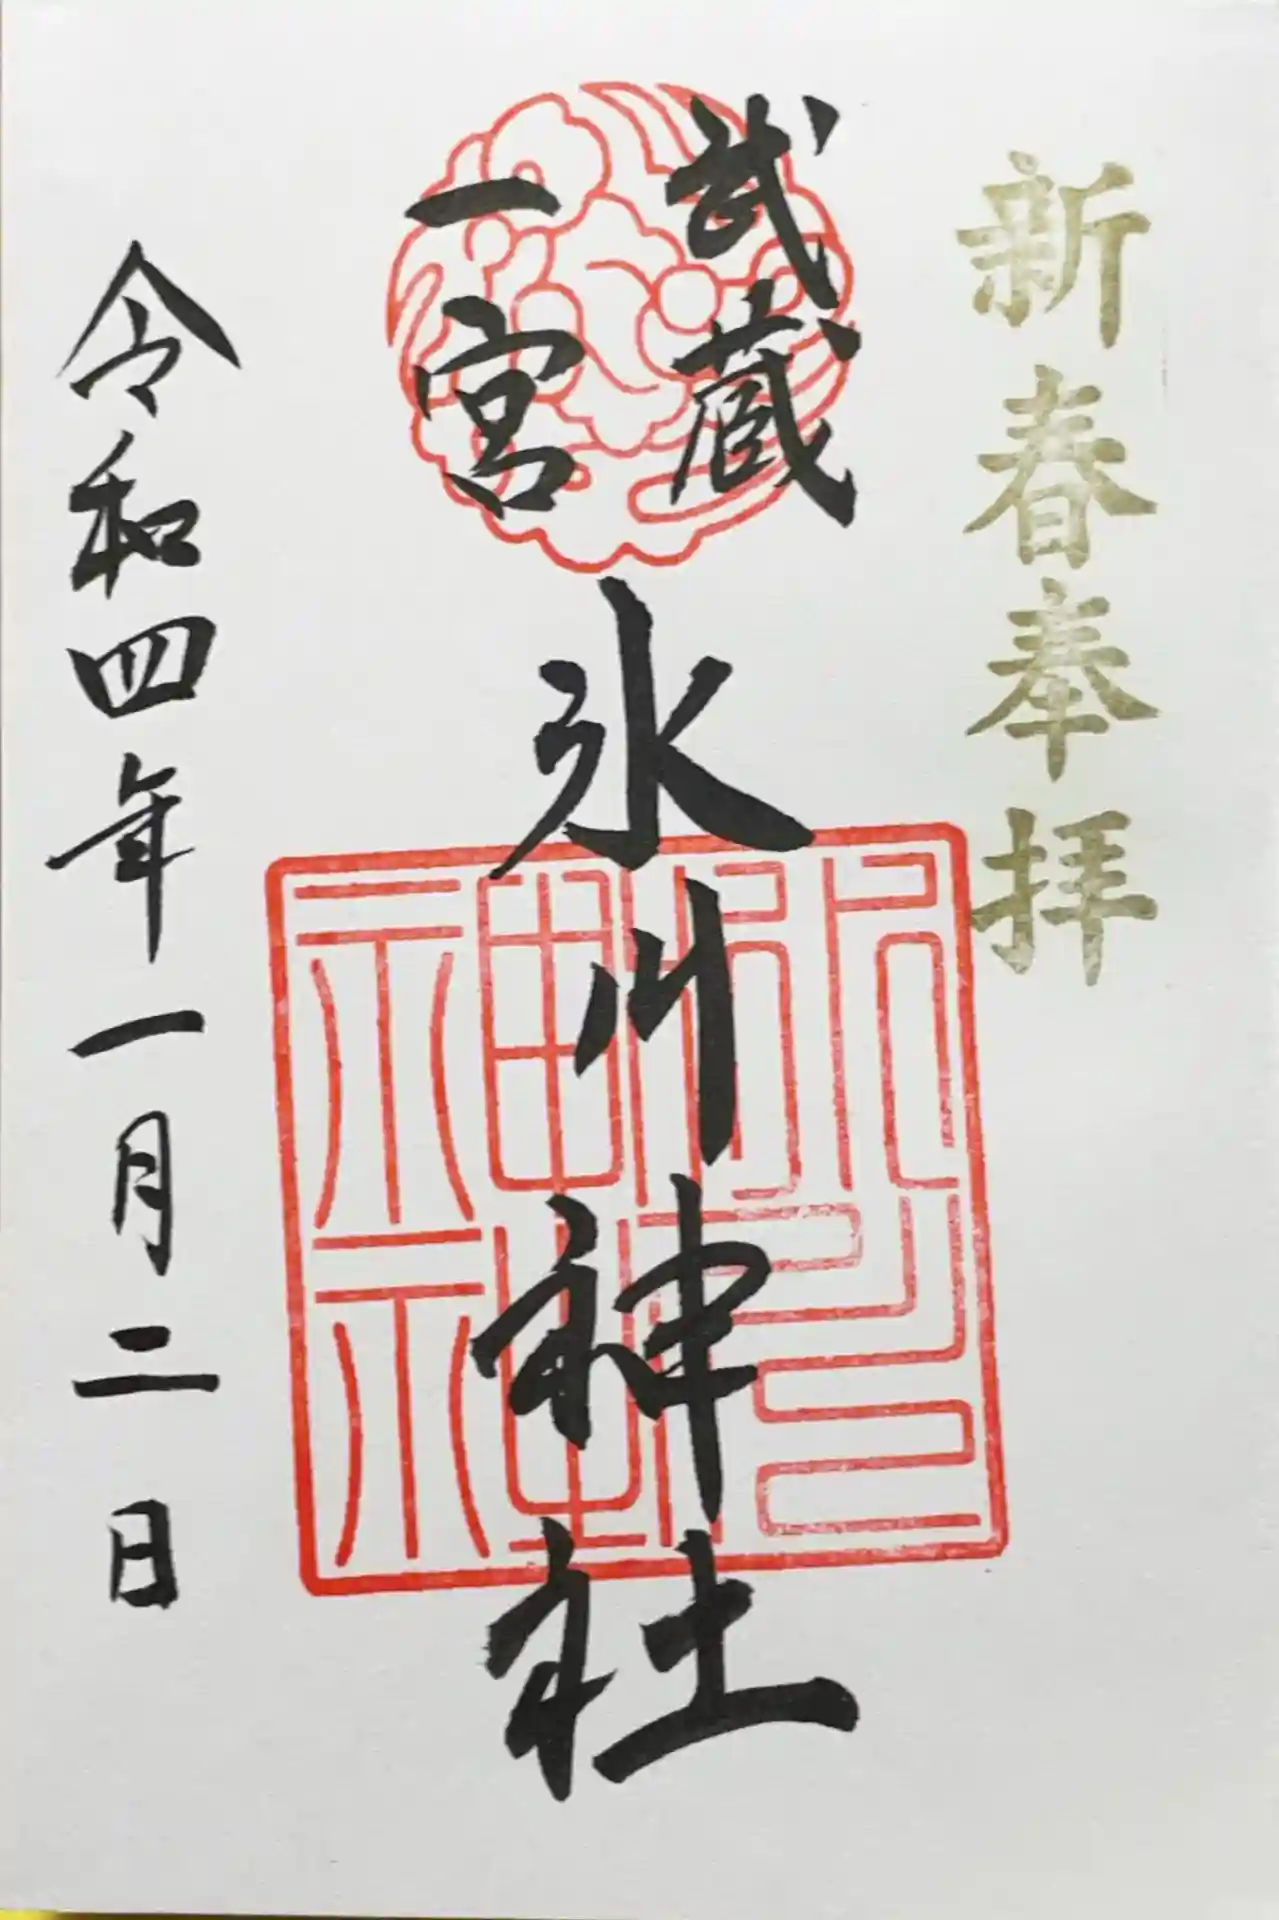 新春奉拝
武蔵
一宮
氷川神社
氷川神社
令和四年一月二日